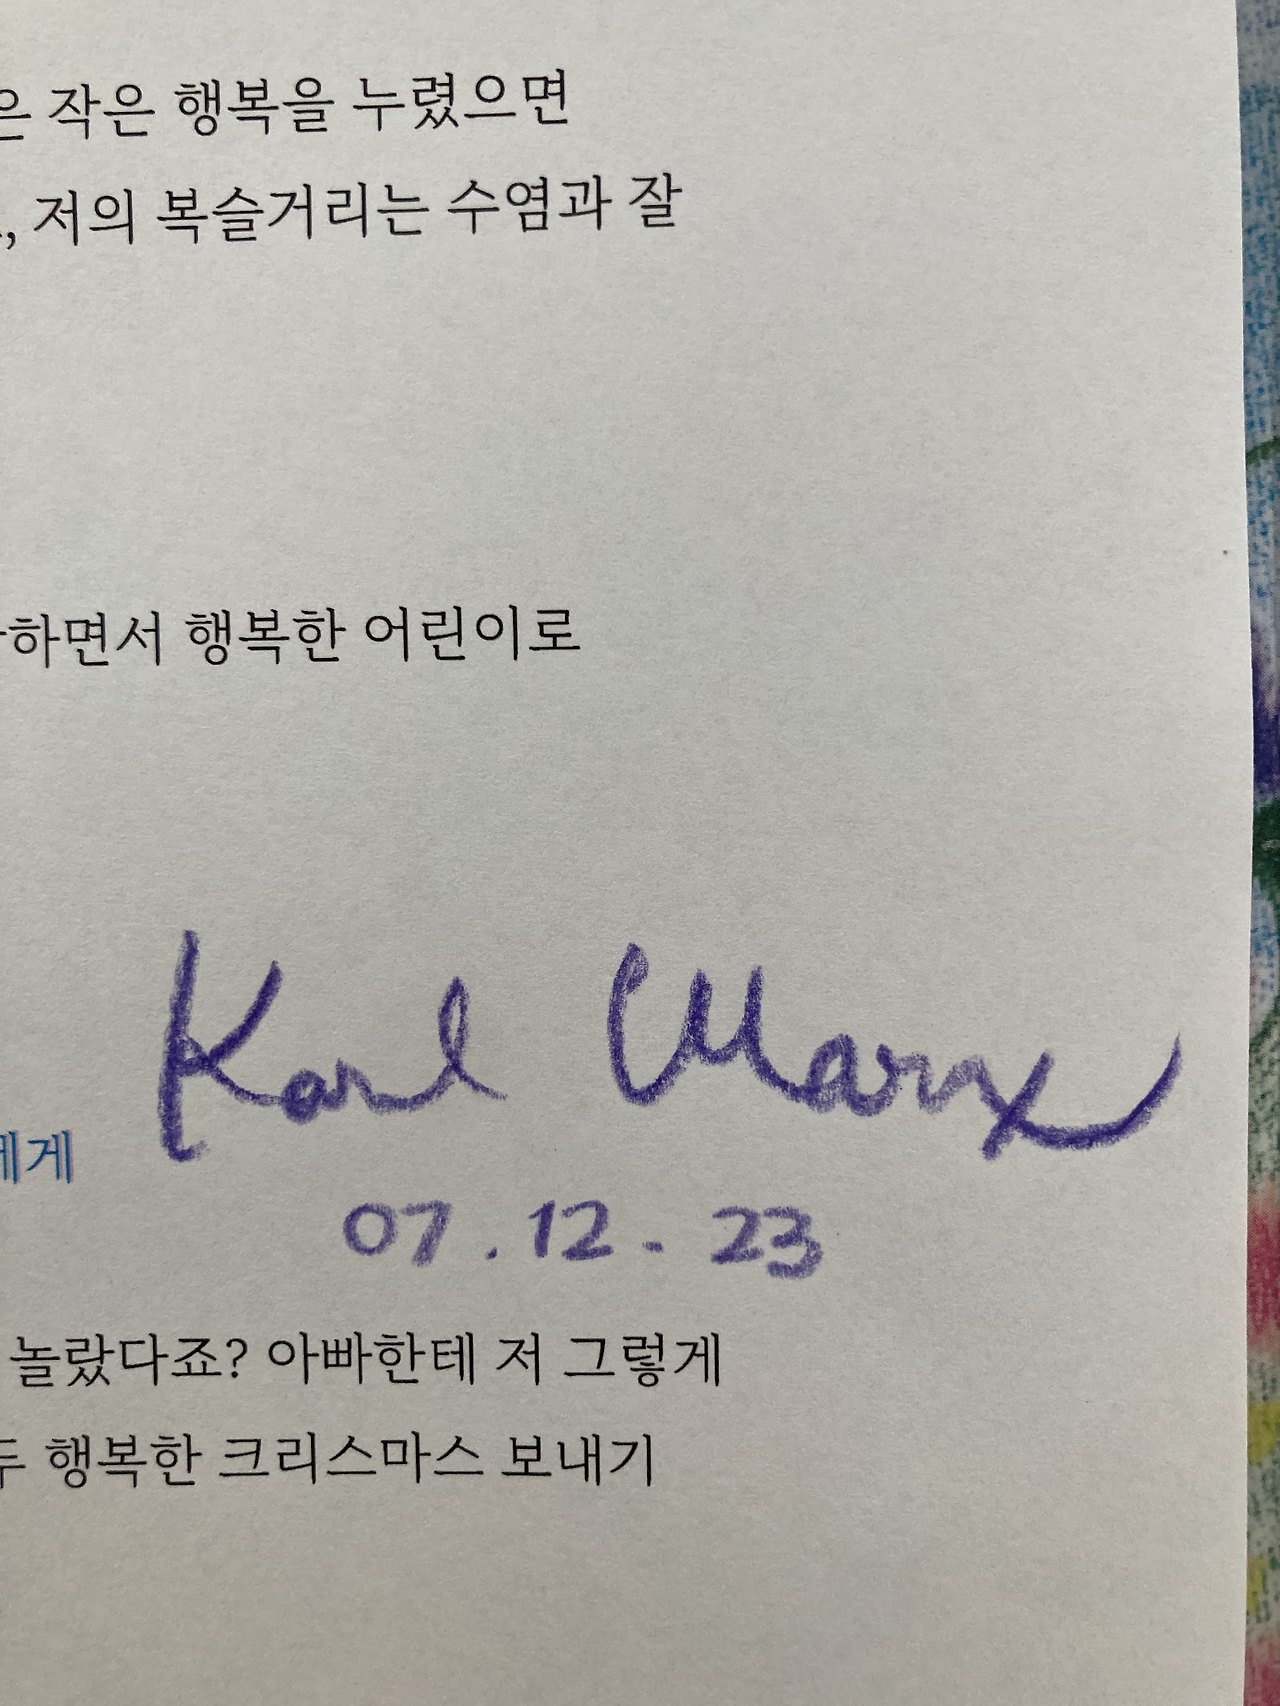 작은 행복을 누렸으면
저의 복슬거리는 수염과 잘
하면서 행복한 어린이로
Karl Marx
에게
07.12.23
놀랐다죠? 아빠한테 저 그렇게
행복한 크리스마스 보내기